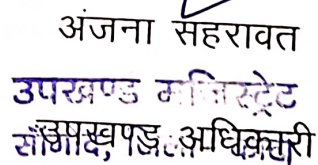 अंजना सहरावत
उपखण्ड मजिस्ट्रेट
उपखण्ड अधिकारी